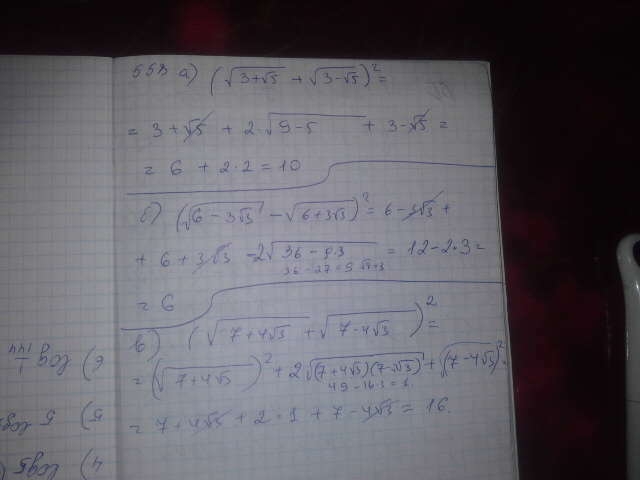 553 а) (√(3+√5) + √(3-√5))² =
= 3 + √5 + 2·√(9-5) + 3-√5 =
= 6 + 2·2 = 10
б) (√(6-3√3) - √(6+3√3))² = 6-3√3 +
+ 6 + 3√3 -2√(36 - 9·3) = 12-2·3 =
36-27=9 √9=3
= 6
в) (√(7+4√3) + √(7-4√3))² =
= (√(7+4√3))² + 2√((7+4√3)(7-4√3)) + (√(7-4√3))² =
49-16·3 = 1.
= 7+4√3 + 2·1 + 7-4√3 = 16.
6) log 1/144
5) 5 log
4) log5